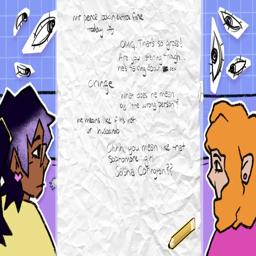 mr pence lookin extra fine
today
OMG, That's so gross!
Are you hearing though...
he's talking about
cringe
What does he mean
by "the wrong person"?
he means like if it's not
ur husband
Ohhh, you mean like that
sophomore girl
Sasha